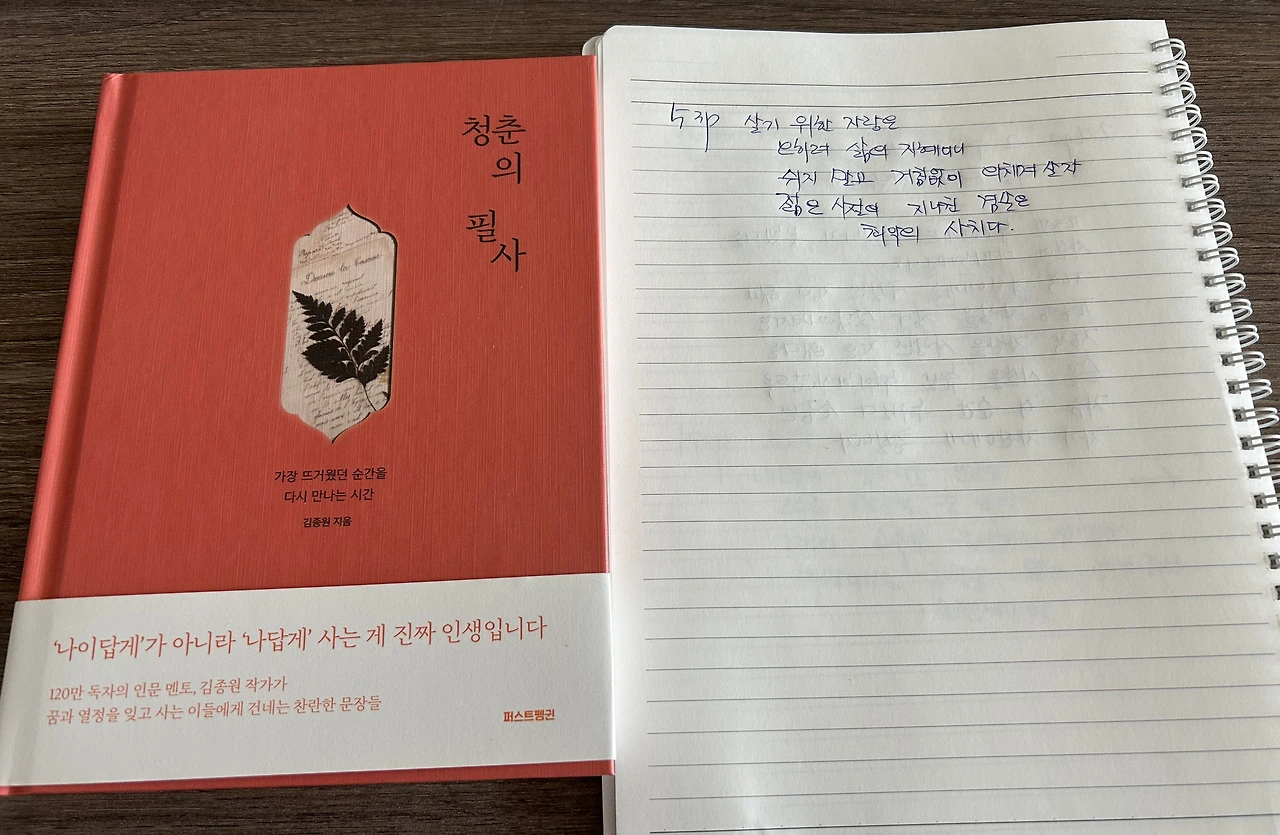 청춘
의
필
사
가장 뜨거웠던 순간을
다시 만나는 시간
김종원 지음
‘나이답게’가 아니라 ‘나답게’ 사는 게 진짜 인생입니다
120만 독자의 인문 멘토, 김종원 작가가
꿈과 열정을 잊고 사는 이들에게 건네는 찬란한 문장들
퍼스트펭귄
살기 위한 자랑은
오히려 삶의 지혜이니
쉬지 말고 거침없이 외치며 살자
젊은 시절의 지나친 겸손은
최악의 사치다.